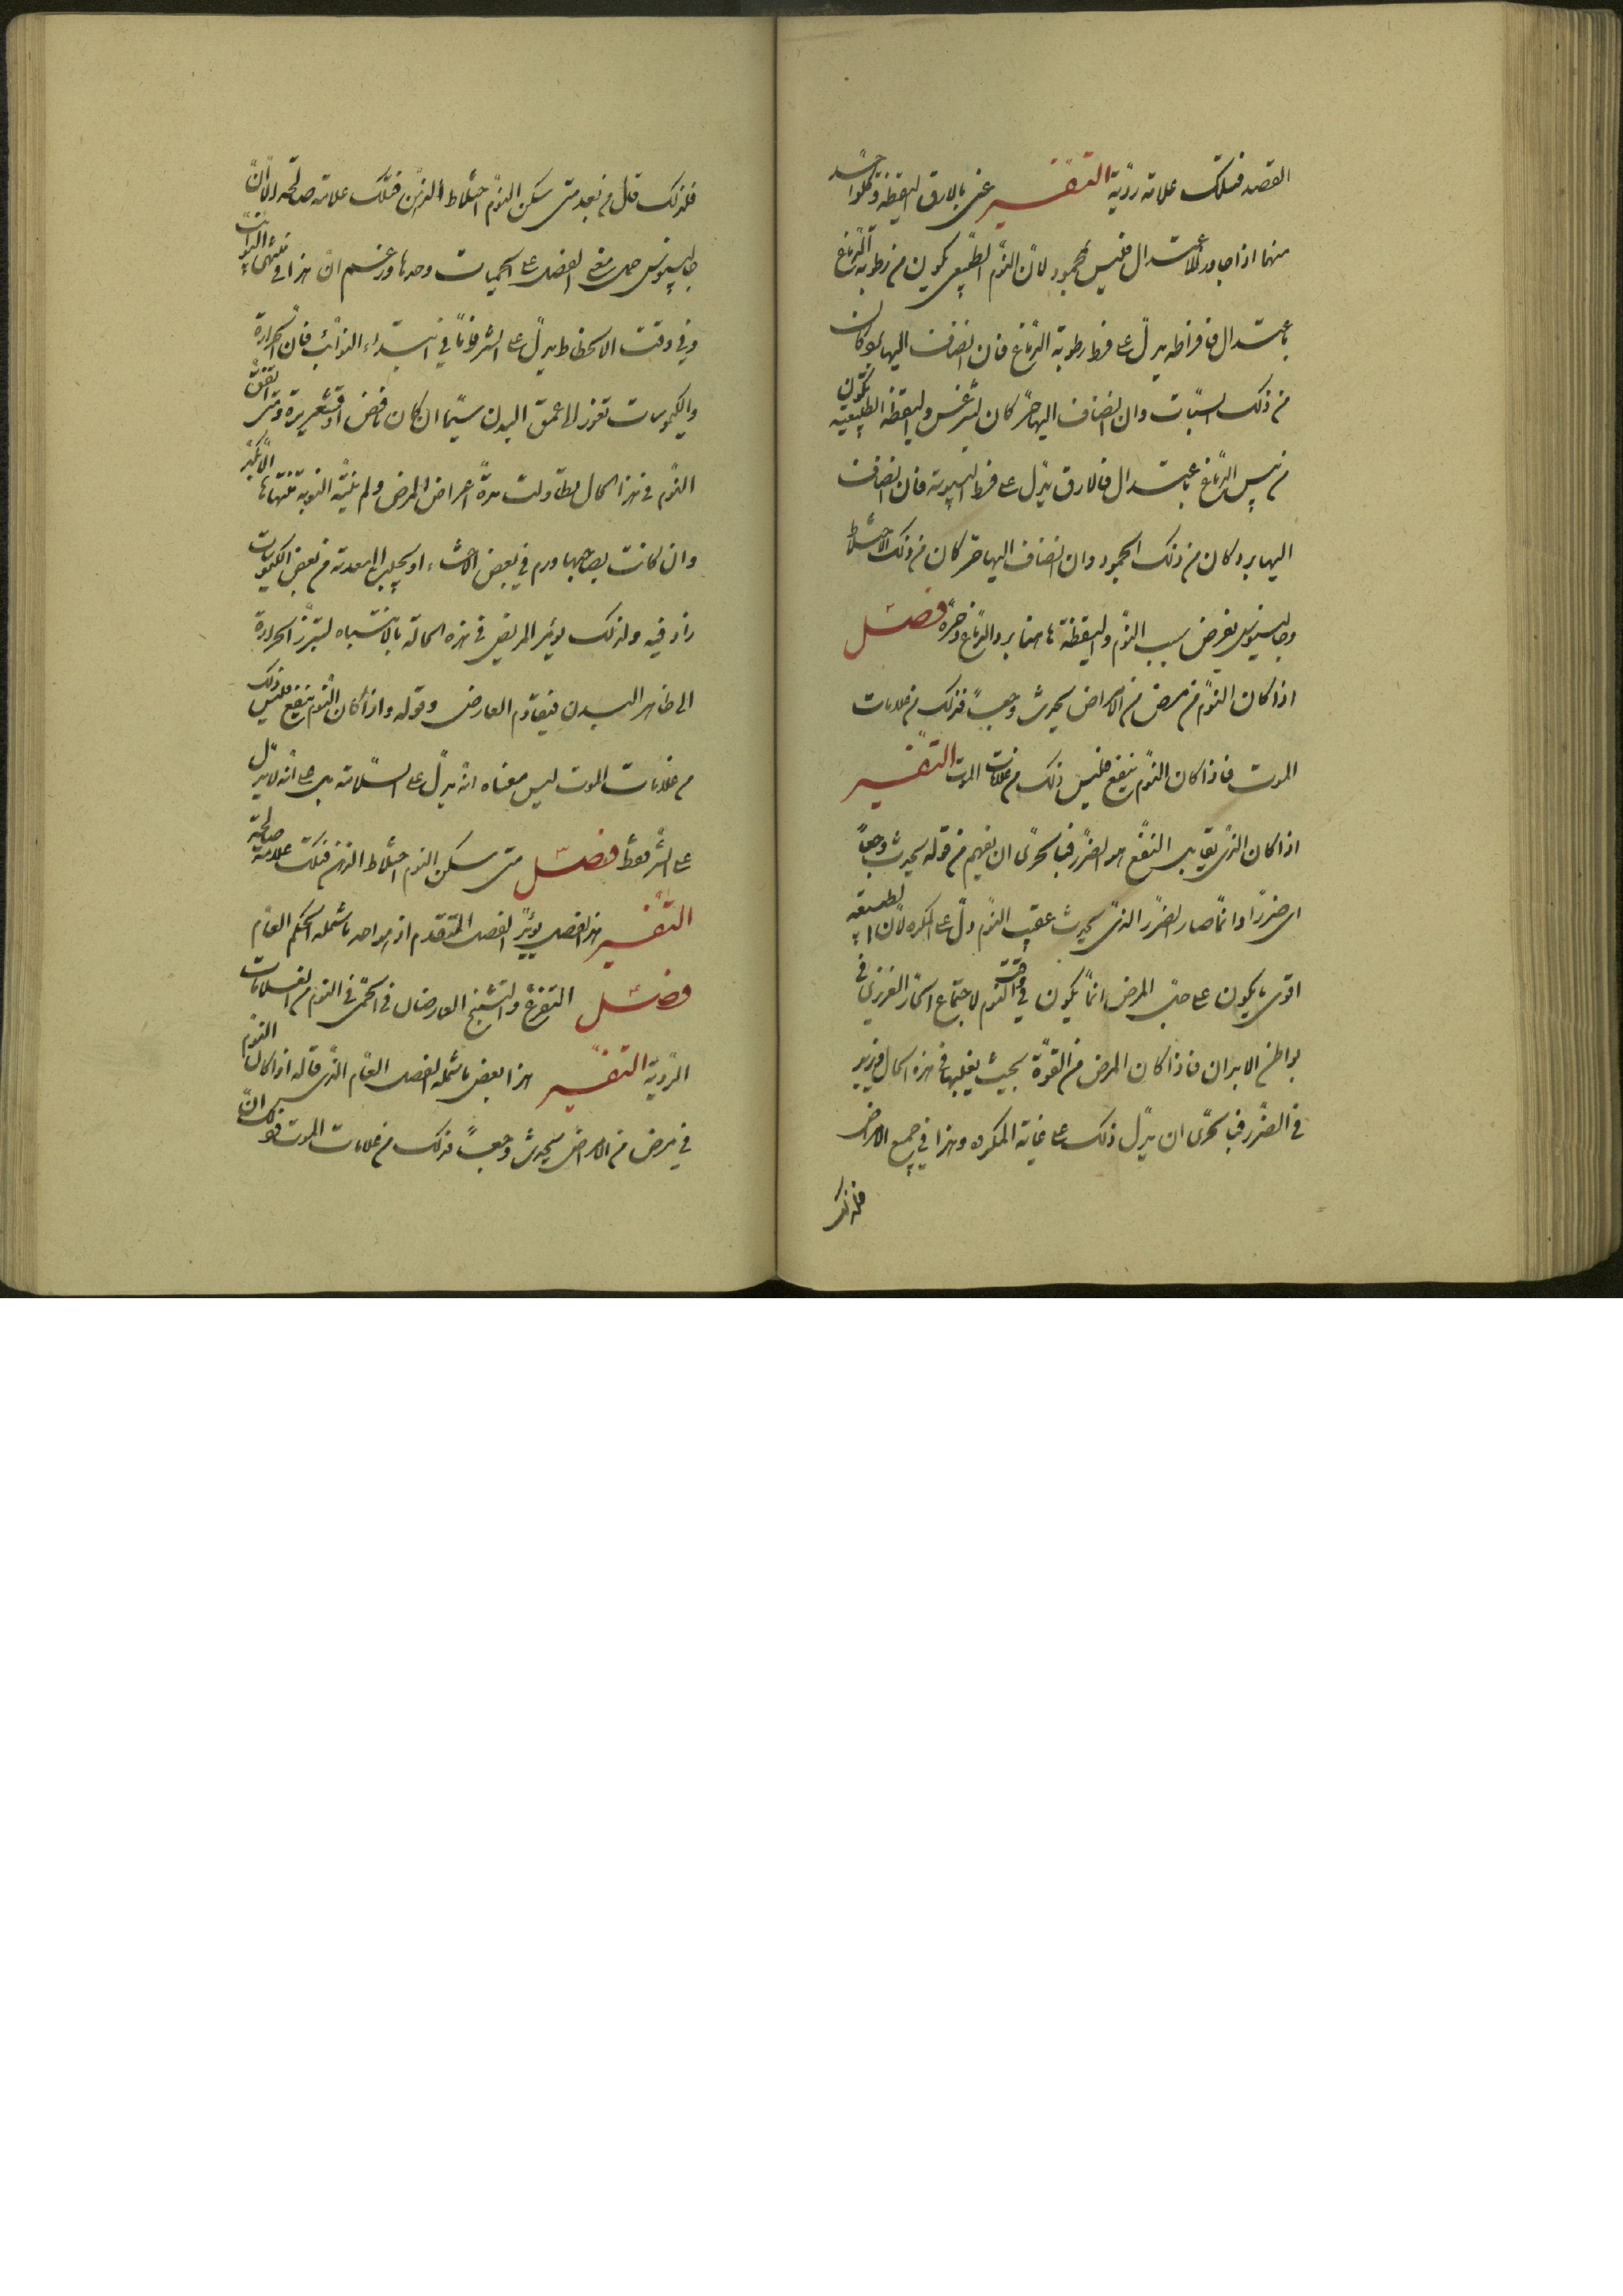 القصد فتلك علامة ردية التفسير عنى بالارق اليقظة وكل واحد
منهما اذا جاوز الاعتدال فليس بمحمود لان النوم الطبيعى يكون من رطوبة الدماغ
باعتدال فافراطه يدل على فرط رطوبة الدماغ فان انضاف اليها برد كان
من ذلك السبات وان انضاف اليها حر كان ليثرغس واليقظة الطبيعية تكون
من يبس الدماغ باعتدال فالارق يدل على فرط اليبوسة فان انضاف
اليها برد كان من ذلك الجمود وان انضاف اليها حر كان من ذلك الاختلاط
وجالينوس يفرض سبب النوم واليقظة هاهنا برد الدماغ وحره فصل
اذا كان النوم فى مرض من الامراض يحدث وجعاً فذلك من علامات
الموت فاذا كان النوم ينفع فليس ذلك من علامات الموت التفسير
اذا كان الذى يقابل النفع هو الضرر فبالحرى ان يفهم من قوله يحدث وجعاً
اى ضرراً وانما صار الضرر الذى يحدث عقيب النوم دل على المكروه لان الطبيعة
اقوى ما يكون على المرض انما يكون فى وقت النوم لاجتماع الحار الغريزى فى
بواطن الابدان فاذا كان المرض من القوة بحيث يغلبها فى هذه الحال ويزيد
فى الضرر فبالحرى ان يدل ذلك على غاية المكروه وهذا فى جميع الامراض
فلذلك
فلذلك قال من بعد متى سكن النوم اختلاط الذهن فتلك علامة صالحة الا ان
جالينوس حمل معنى الفصل على الحميات وحدها وزعم ان هذا فى منتهى النوائب
وفى وقت الانحطاط يدل على الشر فاما فى ابتداء النوائب فان الحرارة
والكيموسات تغور الى عمق البدن سيما ان كان نافض او قشعريرة ومتى اتفق
النوم فى هذا الحال تطاولت مدة اعراض المرض ولم ينته النوبة منتهاها الا بكد
وان كانت يصاحبها ورم فى بعض الاحشاء او يتحلب الى المعدة من بعض الكيموسات
زاد فيه ولذلك يؤمر المريض فى هذه الحالة بالانتباه لتبرز الحرارة
الى ظاهر البدن فيقاوم العارض وقوله واذا كان النوم ينفع فليس ذلك
من علامات الموت ليس معناه انه يدل على السلامة بل على انه لا يدل
على الشر فقط فصل متى سكن النوم اختلاط الذهن فتلك علامة صالحة
التفسير هذا الفصل يؤيد الفصل المتقدم اذ هو احد ما شمله الحكم العام
فصل التفزع والتشنج العارضان فى الحمى فى النوم من العلامات
الردية التفسير هذا بعض ما شمله الفصل العام الذى قاله اذا كان النوم
فى مرض من الامراض يحدث وجعاً فذلك من علامات الموت فذلك ان